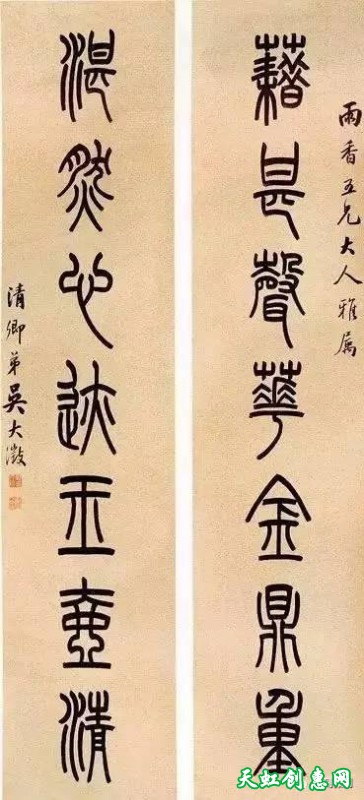 雨香五兄大人雅属
藉甚聲華金鼎重
湛然心迹玉壺清
清卿弟吳大澂
天虹创惠网